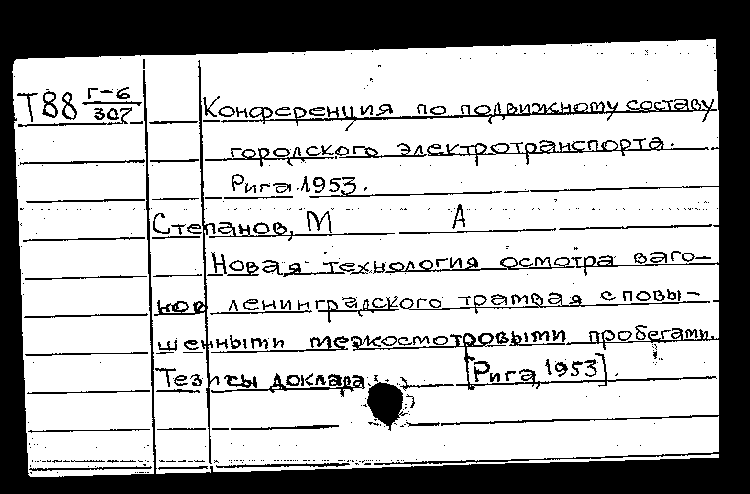 Т88 Г-6/307 Конференция по подвижному составу
городского электротранспорта.
Рига 1953.
Степанов, М А
Новая технология осмотра ваго-
нов ленинградского трамвая с повы-
шенными межосмотровыми пробегами.
Тезисы доклада. [Рига, 1953].